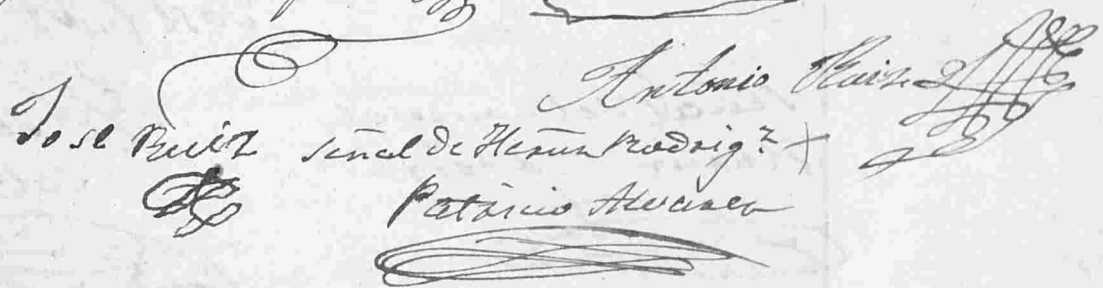 Antonio Ruiz
Jose Ruiz señal de Hernan Rodrig.z +
Patricio Alvarez